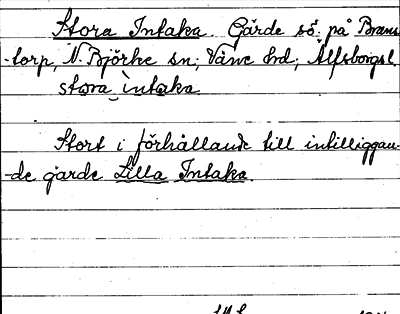 Stora Intaka. Gärde sö. på Brams
-torp, N. Björke sn,Väne hd, Älfsborgs l.
stora intaka
Stort i förhållande till intilliggan-
-de gärde Lilla Intaka.